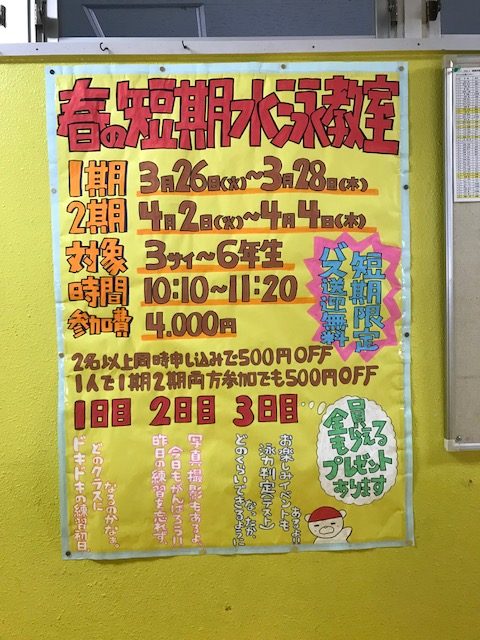 春の短期水泳教室
1期 3月26日(火)～3月28日(木)
2期 4月2日(火)～4月4日(木)
対象 3サイ～6年生
時間 10:10～11:20
参加費 4.000円
短期限定
バス送迎無料
2名以上同時申し込みで500円OFF
1人で1期2期両方参加でも500円OFF
1日目 2日目 3日目…
全員
もらえる
プレゼント
あります
ドキドキの練習初日
どのクラスに
なるのかなぁ。
昨日の練習を忘れず
今日もがんばろう!!
写真撮影もあるよ
どのくらいできるように
なったか、
泳力判定(テスト)
お楽しみイベントも
あるよ!!